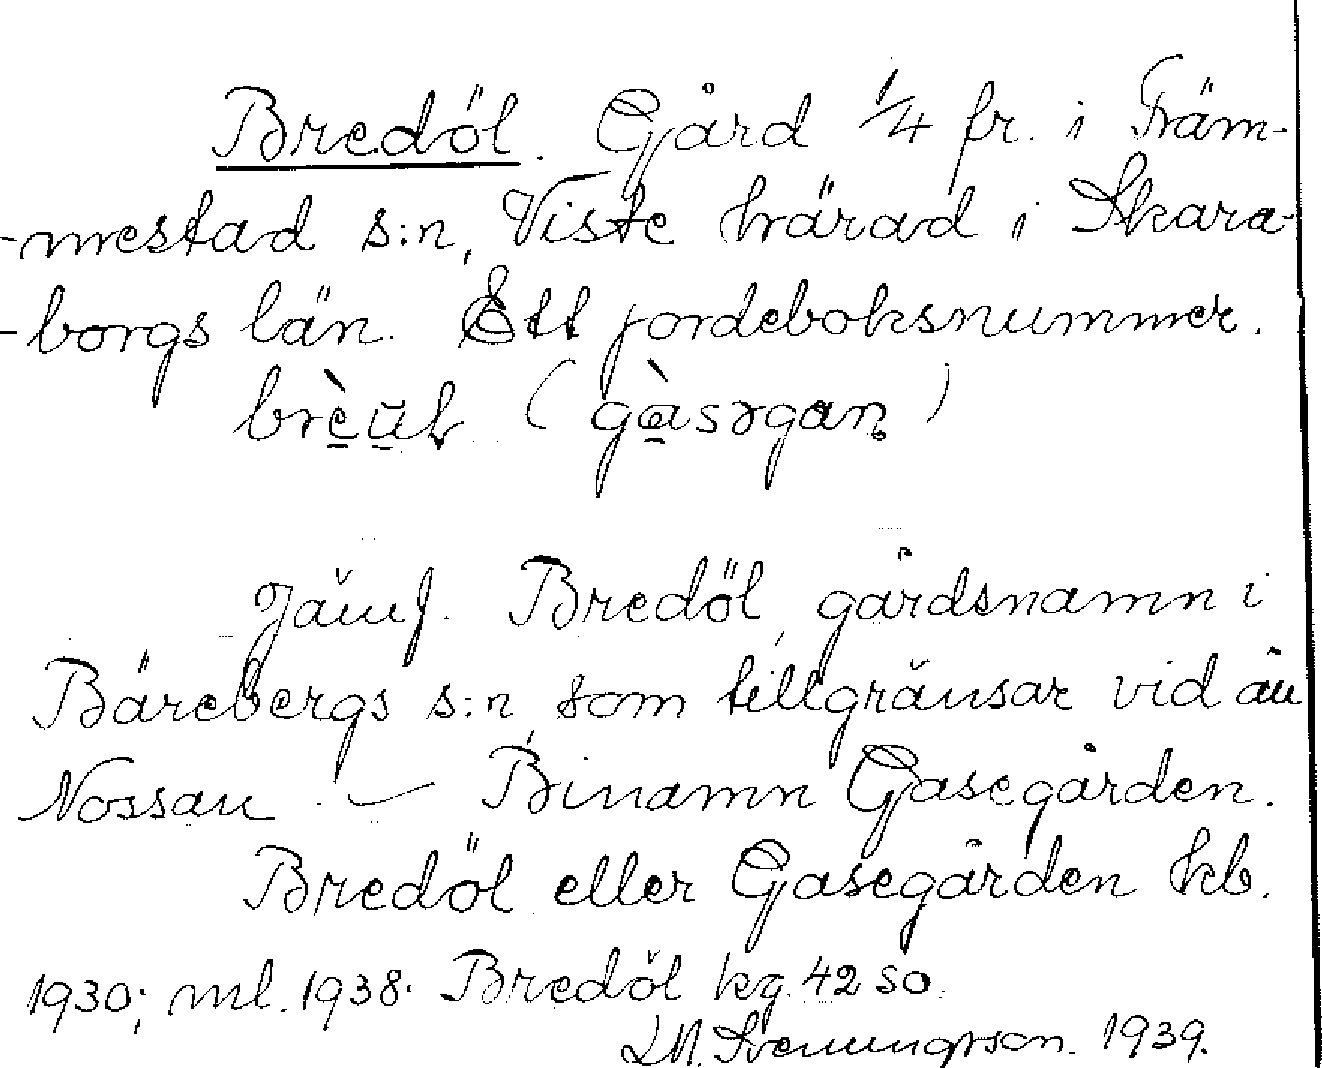 Bredöl. Gård 1/4 fr. i Främ-
-mestad s:n, Viste härad i Skara-
-borgs län. Ett jordeboksnummer.
(gàsrgan)
Jämf. Bredöl, gårdsnamn i
Bärebergs s:n som tillgränsar vid ån
Nossan. — Binamn Gasegården.
Bredöl eller Gasegården kb.
1930; ml. 1938. Bredöl kg. 42 so.
1939.